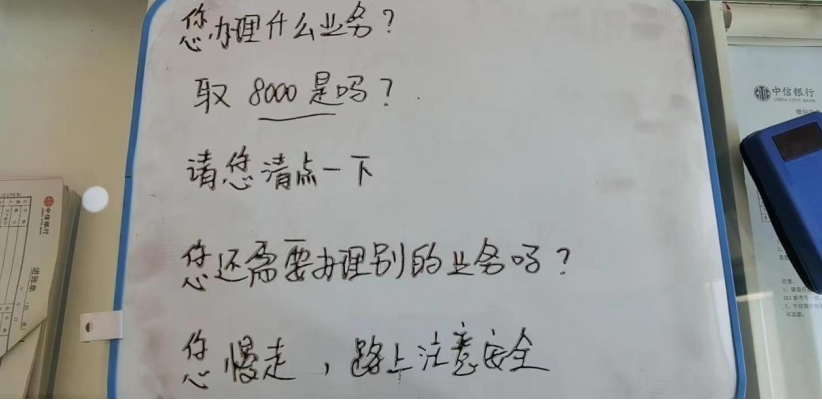 您办理什么业务？
取 8000 是吗？
请您清点一下
您还需要办理别的业务吗？
您慢走，路上注意安全
中信银行
CHINA CITIC BANK
中信银行
进账单